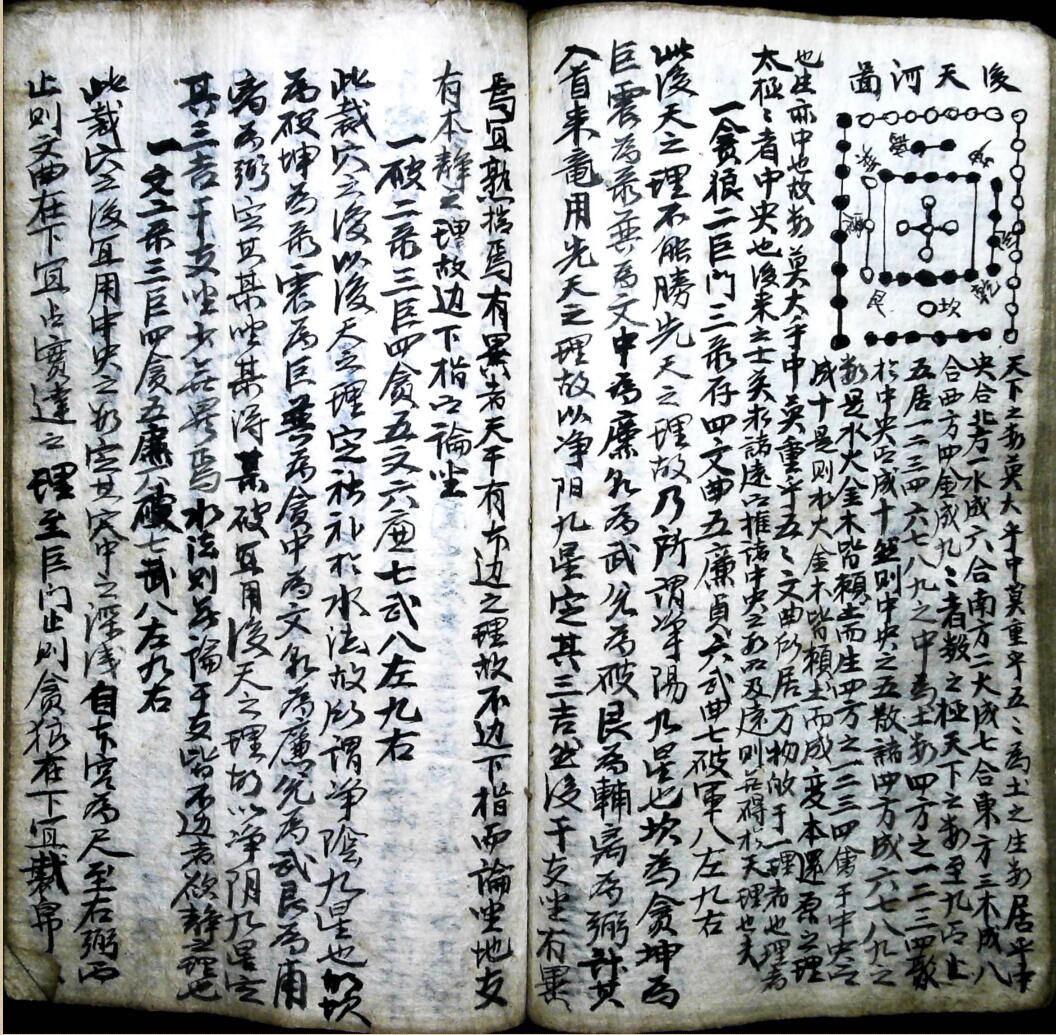 後天河圖
坎
艮
天下之数莫大乎中莫重乎五〻為土之生数居乎中
央合北方一水成六合南方二火成七合東方三木成八
合西方四金成九〻者数之極天下之数至九而止
五居一二三四六七八九之中為土数四方之一二三四聚
於中央而成十然則中央之五散諸四方成六七八九之
数是水火金木皆賴土而生四方之一二三四會于中央而
成十是則水火金木皆賴土而成变本還原之理
也土亦中也故数莫大乎中莫重乎五〻文曲所居万物啟于一理者也理者
太極〻者中央也後来之士美求諸遠而推諸中央之数及遠則無得於天理也夫
一貪狼二巨门三彔存四文曲五廉貞六武曲七破軍八左九右
此後天之理不能勝先天之理故乃所謂淨陽九星也坎為貪坤為
巨震為彔巽為文中為廉乾為武兌為破艮為輔离為弼計其
入首来竜用先天之理故以净阴九星定其三吉然後干支坐有異
焉宜熟指焉有異者天干有本边之理故不边下指而論坐地支
有本静之理故边下指而論坐
一破二彔三巨四貪五文六廉七武八左九右
此裁穴之後以後天之理定於水法故所謂净陰九星也如坎
為破坤為彔震為巨巽為貪中為文乾為廉兌為武艮為甫
离為弼定其某坐某得某破宜用後天之理故以净阴九星定
其三吉干支坐少無異焉水法則無論干支皆不边者欲静之理也
一文二彔三巨四貪五廉六破七武八左九右
此裁穴之後宜用中央之数定其穴中之深浅自本宮為尺至右弼而
止則文曲在下宜占寳達之理至巨门止則貪狼在下宜裁帛